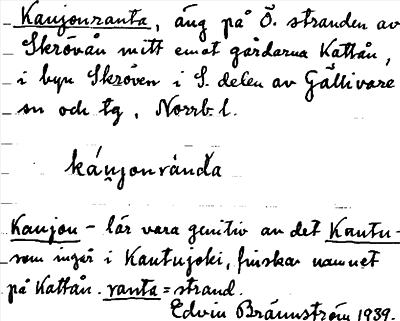 Kaujonranta, äng på Ö. stranden av
Skrövån mitt emot gårdarna Kattån,
i byn Skröven i S. delen av Gällivare
sn och tg, Norrb. l.
káu̯jonrànda
Kaujon – lär vara genitiv av det Kautu-
som ingår i Kautujoki, finska namnet
på Kattån. ranta = strand.
Edvin Brännström 1939.